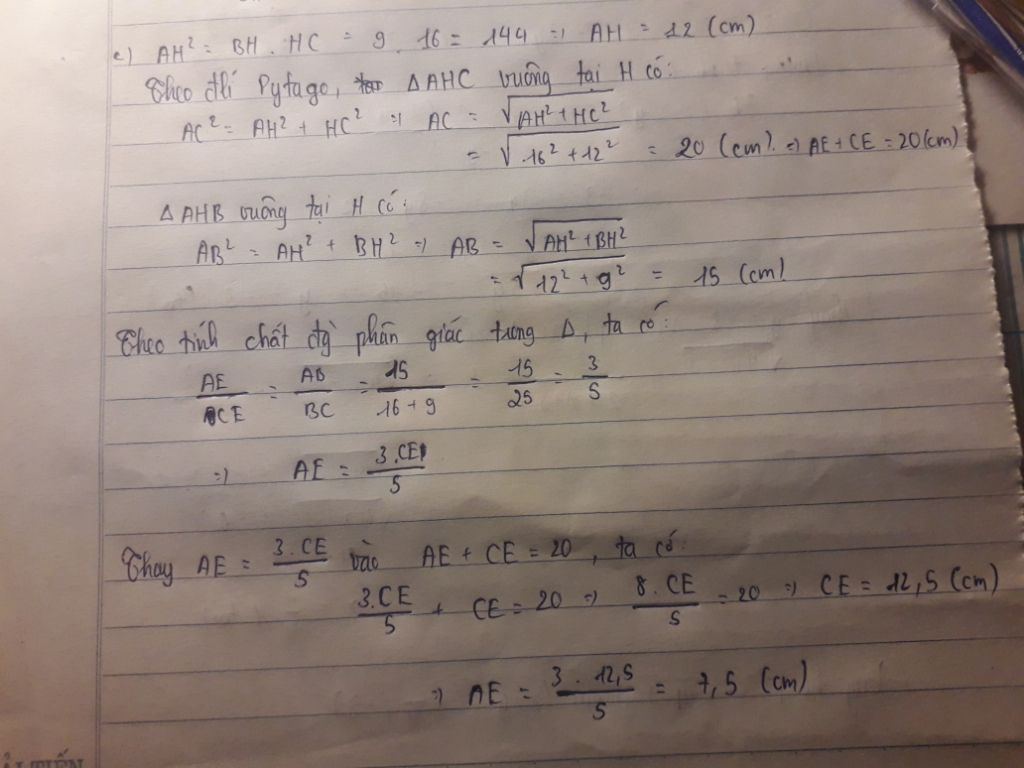 c) AH² = BH . HC = 9 . 16 = 144 => AH = 12 (cm)
Theo đlí Pytago, ΔAHC vuông tại H có:
AC² = AH² + HC² => AC = √AH² + HC²
= √16² + 12² = 20 (cm) => AE + CE = 20 (cm)
ΔAHB vuông tại H có:
AB² = AH² + BH² => AB = √AH² + BH²
= √12² + 9² = 15 (cm)
Theo tính chất đg phân giác trong Δ, ta có:
AE/CE = AB/BC = 15/16 + 9 = 15/25 = 3/5
=> AE = 3.CE/5
Thay AE = 3.CE/5 vào AE + CE = 20, ta có:
3.CE/5 + CE = 20 => 8.CE/5 = 20 => CE = 12,5 (cm)
=> AE = 3 . 12,5/5 = 7,5 (cm)